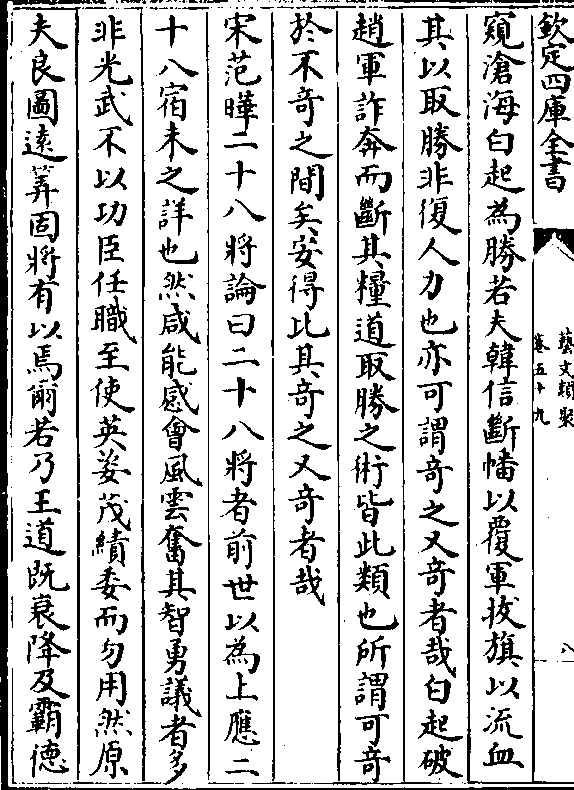 欽定四庫全書
藝文類聚
卷五十九
八
窺滄海白起為勝若夫韓信斷幡以覆軍拔旗以流血
其以取勝非復人力也亦可謂奇之又奇者哉白起破
趙軍詐奔而斷其糧道取勝之術皆此類也所謂可奇
於不奇之間矣安得比其奇之又奇者哉
宋范曄二十八將論曰二十八將者前世以為上應二
十八宿未之詳也然咸能感會風雲奮其智勇議者多
非光武不以功臣任職至使英姿茂績委而勿用然原
夫良圖遠筭固將有以焉爾若乃王道既衰降及霸德